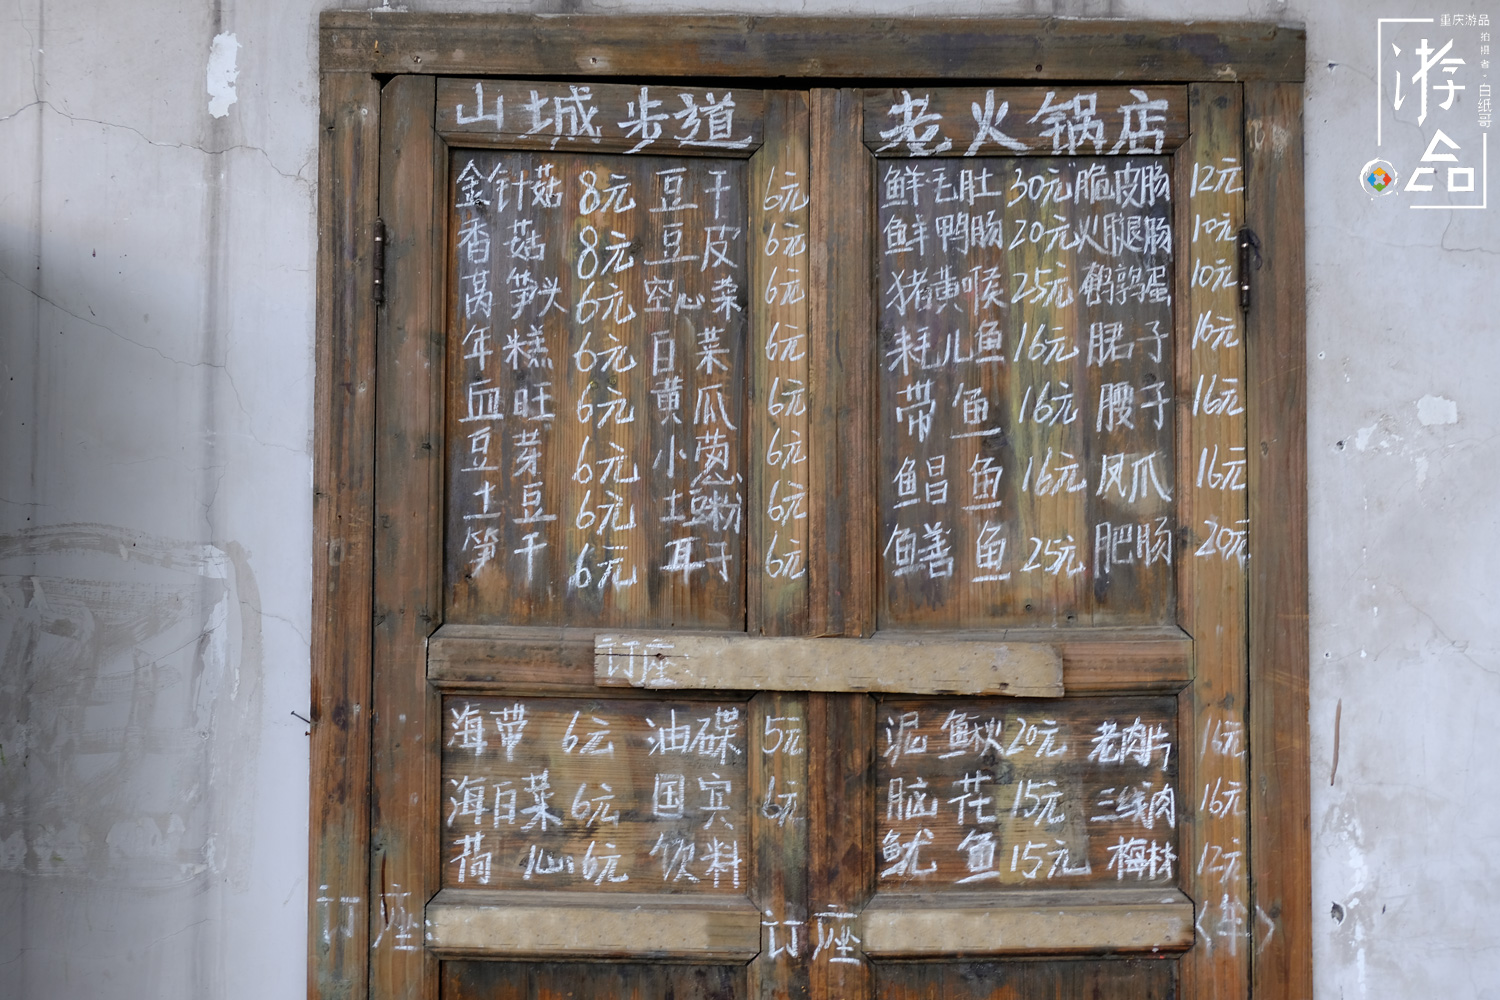 山城步道 老火锅店
金针菇 8元 豆干 6元 鲜毛肚 30元 脆皮肠 12元
香菇 8元 豆皮 6元 鲜鸭肠 20元 火腿肠 10元
莴笋头 6元 空心菜 6元 猪黄喉 25元 鹌鹑蛋 10元
年糕 6元 白菜 6元 耗儿鱼 16元 腒子 16元
血旺 6元 黄瓜 6元 带鱼 16元 腰子 16元
豆芽 6元 小葱 6元 鲳鱼 16元 凤爪 16元
土豆 6元 土豆粉 6元
笋干 6元 耳子 6元 鳝鱼 25元 肥肠 20元
订座
海带 6元 油碟 5元 泥鳅 20元 老肉片 16元
海白菜 6元 国宾 6元 脑花 15元 三线肉 16元
荷心 6元 饮料 鱿鱼 15元 梅林 12元
订座: 订座
重庆游品
拍摄者·白纸哥
游品